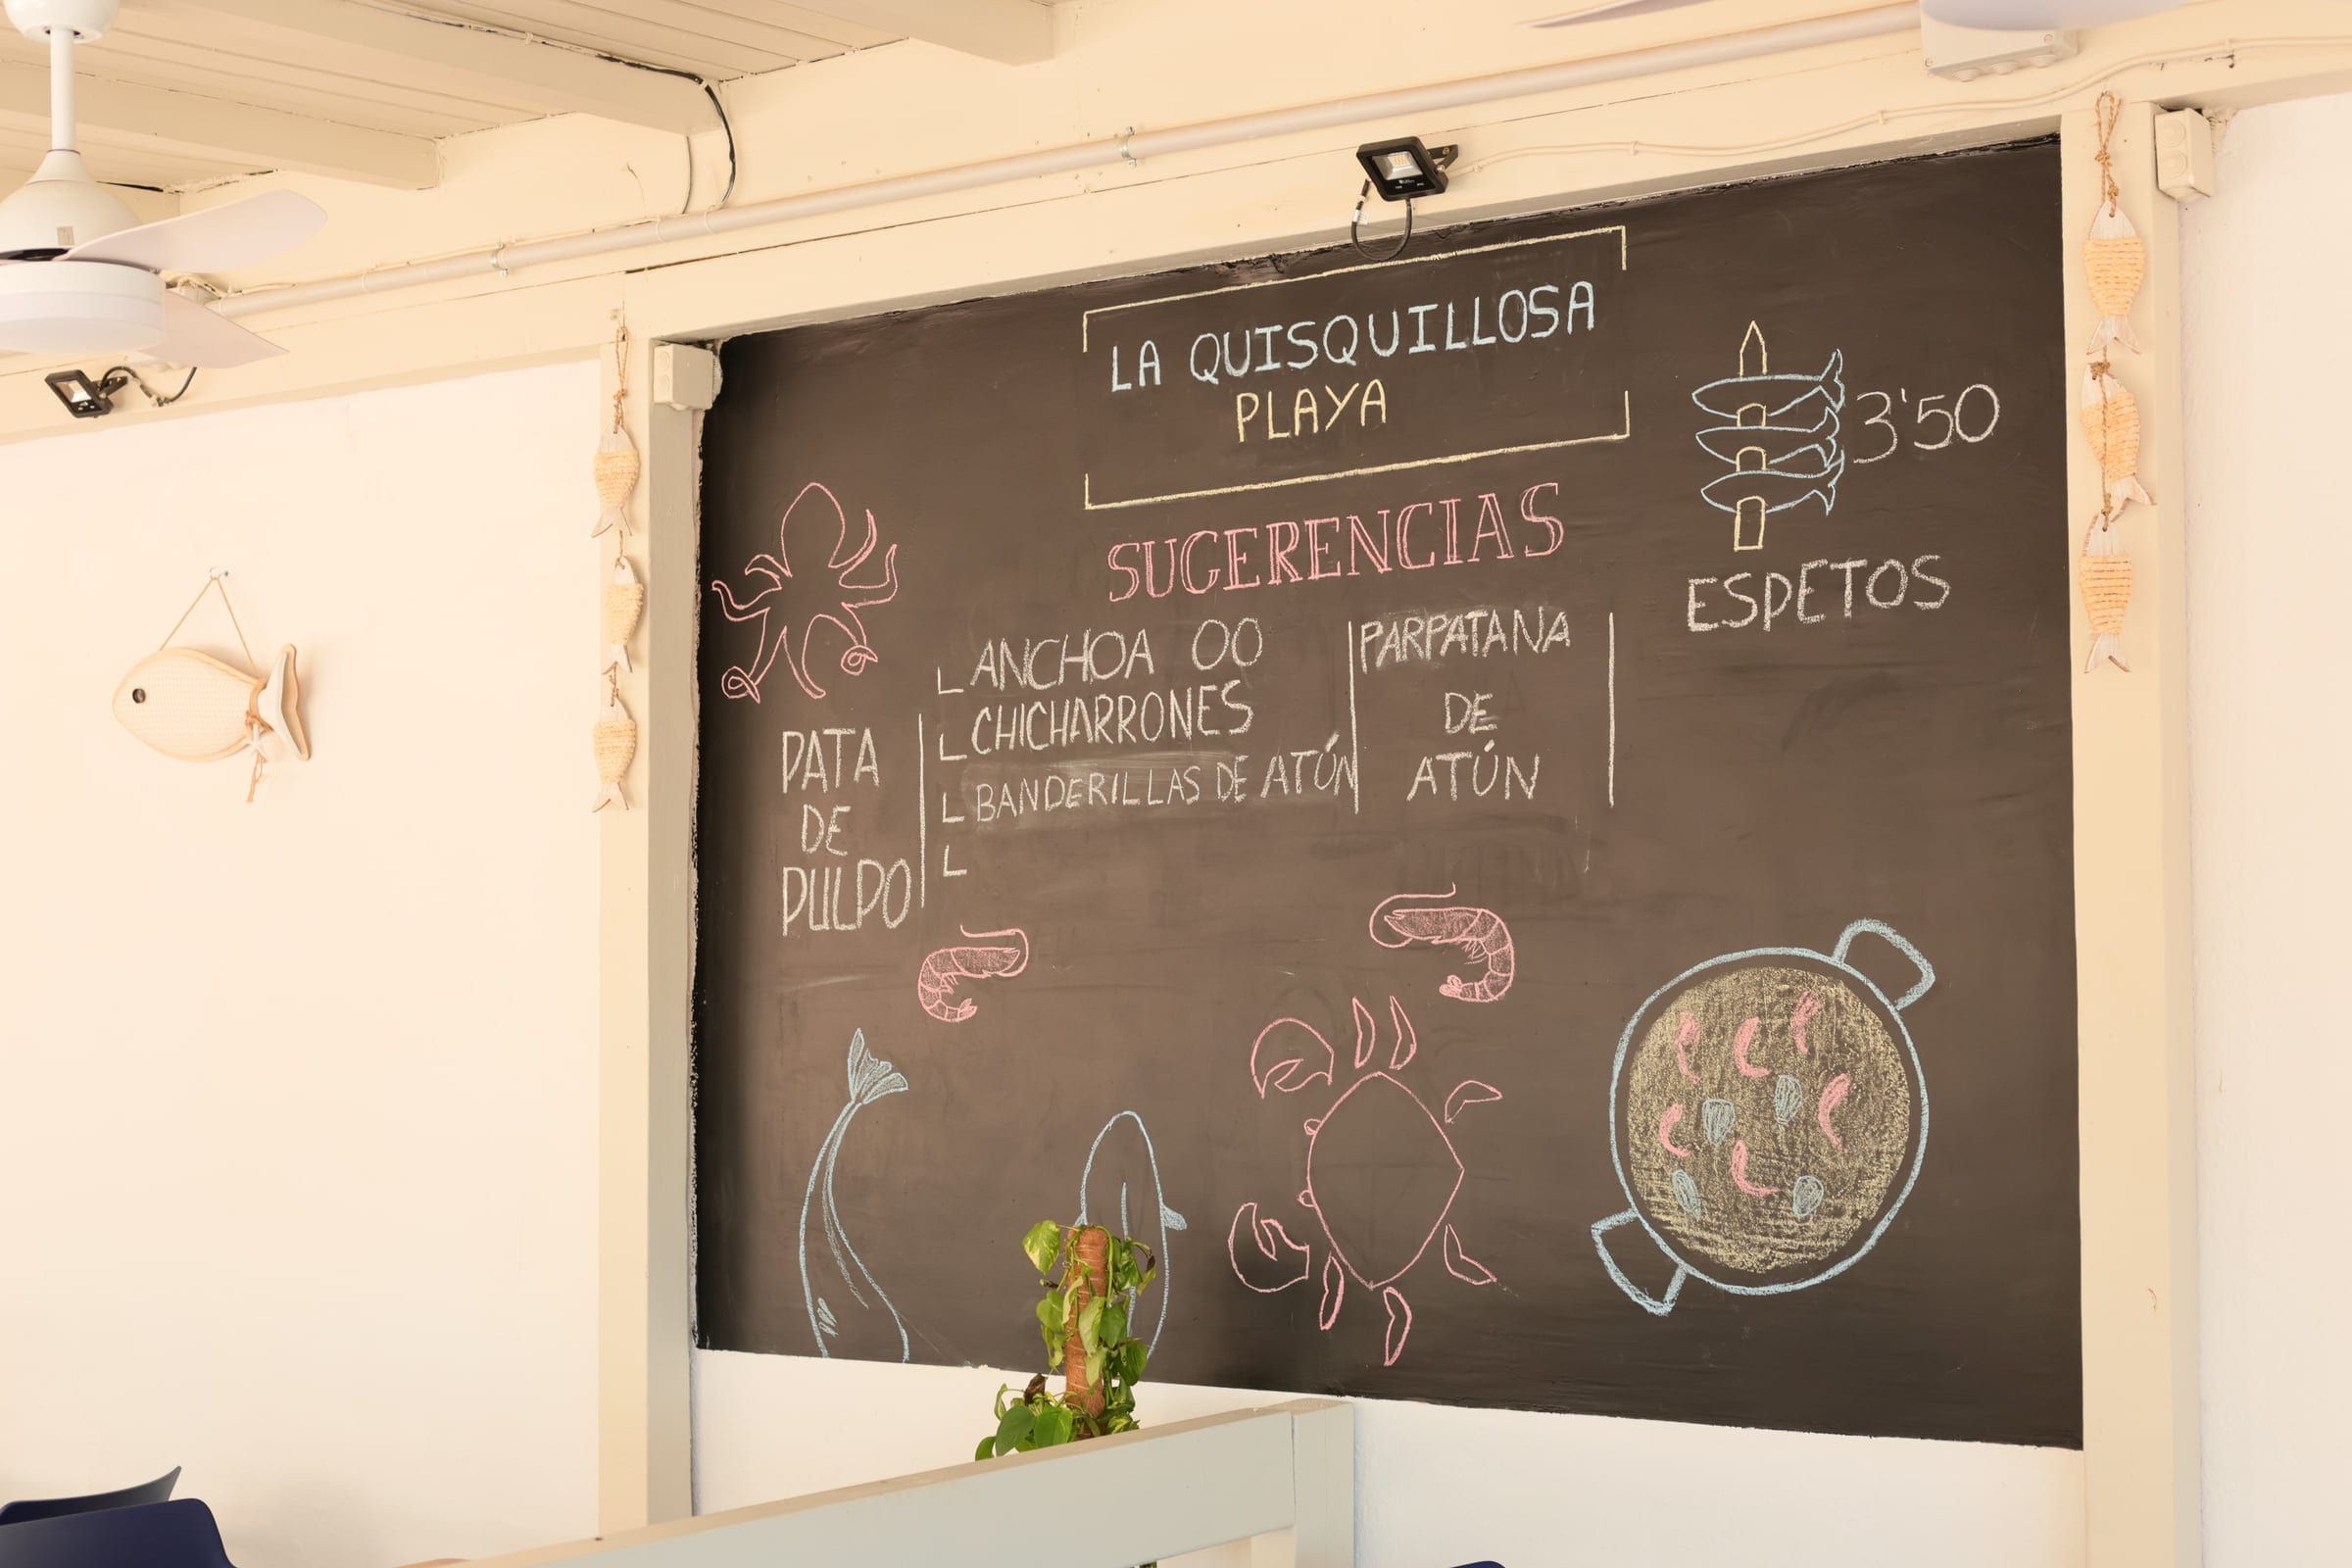 LA QUISQUILLOSA
PLAYA
3'50
ESPETOS
SUGERENCIAS
PATA
DE
PULPO
ANCHOA OO
CHICHARRONES
BANDERILLAS DE ATÚN
PARPATANA
DE
ATÚN